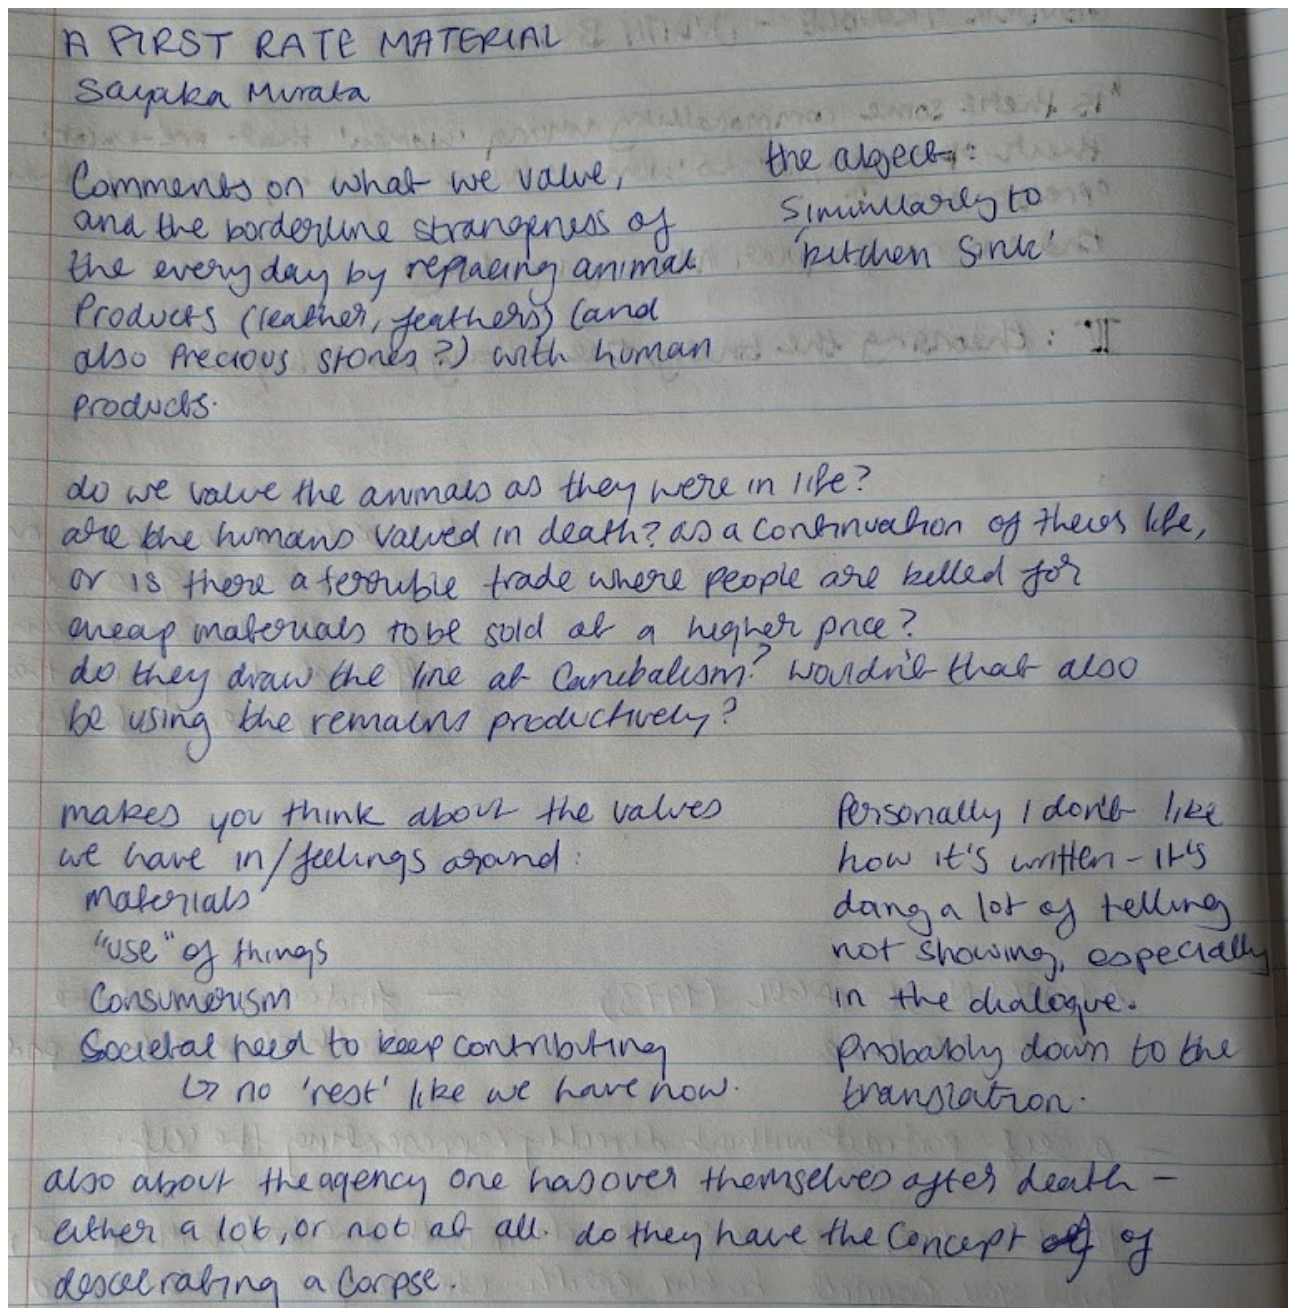 A FIRST RATE MATERIAL
Sayaka Murata
Comments on what we value,
and the borderline strangeness of
the everyday by replacing animal
Products (leather, feathers) (and
also Precious stones?) with human
products.
the abject:
Simillarly to
'kitchen Sink'
do we value the animals as they were in life?
are the humans valued in death? as a continuation of their life,
or is there a terrible trade where people are killed for
cheap materials to be sold at a higher price?
do they draw the line at Canibalism? wouldn't that also
be using the remains productively?
makes you think about the values
we have in/feelings around:
materials
"use" of things
Consumerism
Societal need to keep contributing
↳ no 'rest' like we have now.
Personally I don't like
how it's written - it's
doing a lot of telling
not showing, especially
in the dialogue.
Probably down to the
translation.
also about the agency one has over themselves after death -
either a lot, or not at all. do they have the concept of
desecrating a corpse.